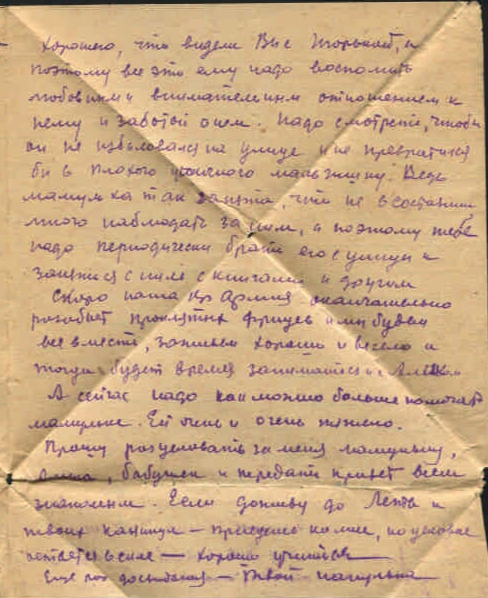 хорошего, что видели Вы с
поэтому все это ему надо восполнить
любовным и внимательным отношением к
нему и заботой о нем. Надо смотреть, чтобы
он не избаловался на улице и не превратился
бы в плохого уличного мальчишку. Ведь
мамулька так занята, что не в состоянии
много наблюдать за ним, а поэтому тебе
надо периодически брать его с улицы и
заняться с ним с книгами и другим
Скоро наша Кр Армия окончательно
разобьет проклятых фрицев и мы будем
все вместе, заживем хорошо и весело и
тогда будет время заниматься с
А сейчас надо как можно больше помогать
мамульке. Ей очень и очень тяжело.
Прошу расцеловать за меня мамульку,
бабушек и передать привет всем
знакомым. Если доживу до Лета и
твоих каникул — приедешь ко мне, но условие
остается в силе — хорошо учиться
Еще раз досвидания — Твой папулька